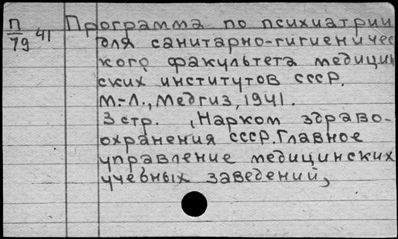 П/79 41 Программа по психиатрии
для санитарно-гигиеничес
кого факультета медицин
ских институтов СССР.
М.-Л., Медгиз, 1941.
3 стр. , Нарком здраво-
охранения СССР. Главное
управление медицинских
учебных заведений,